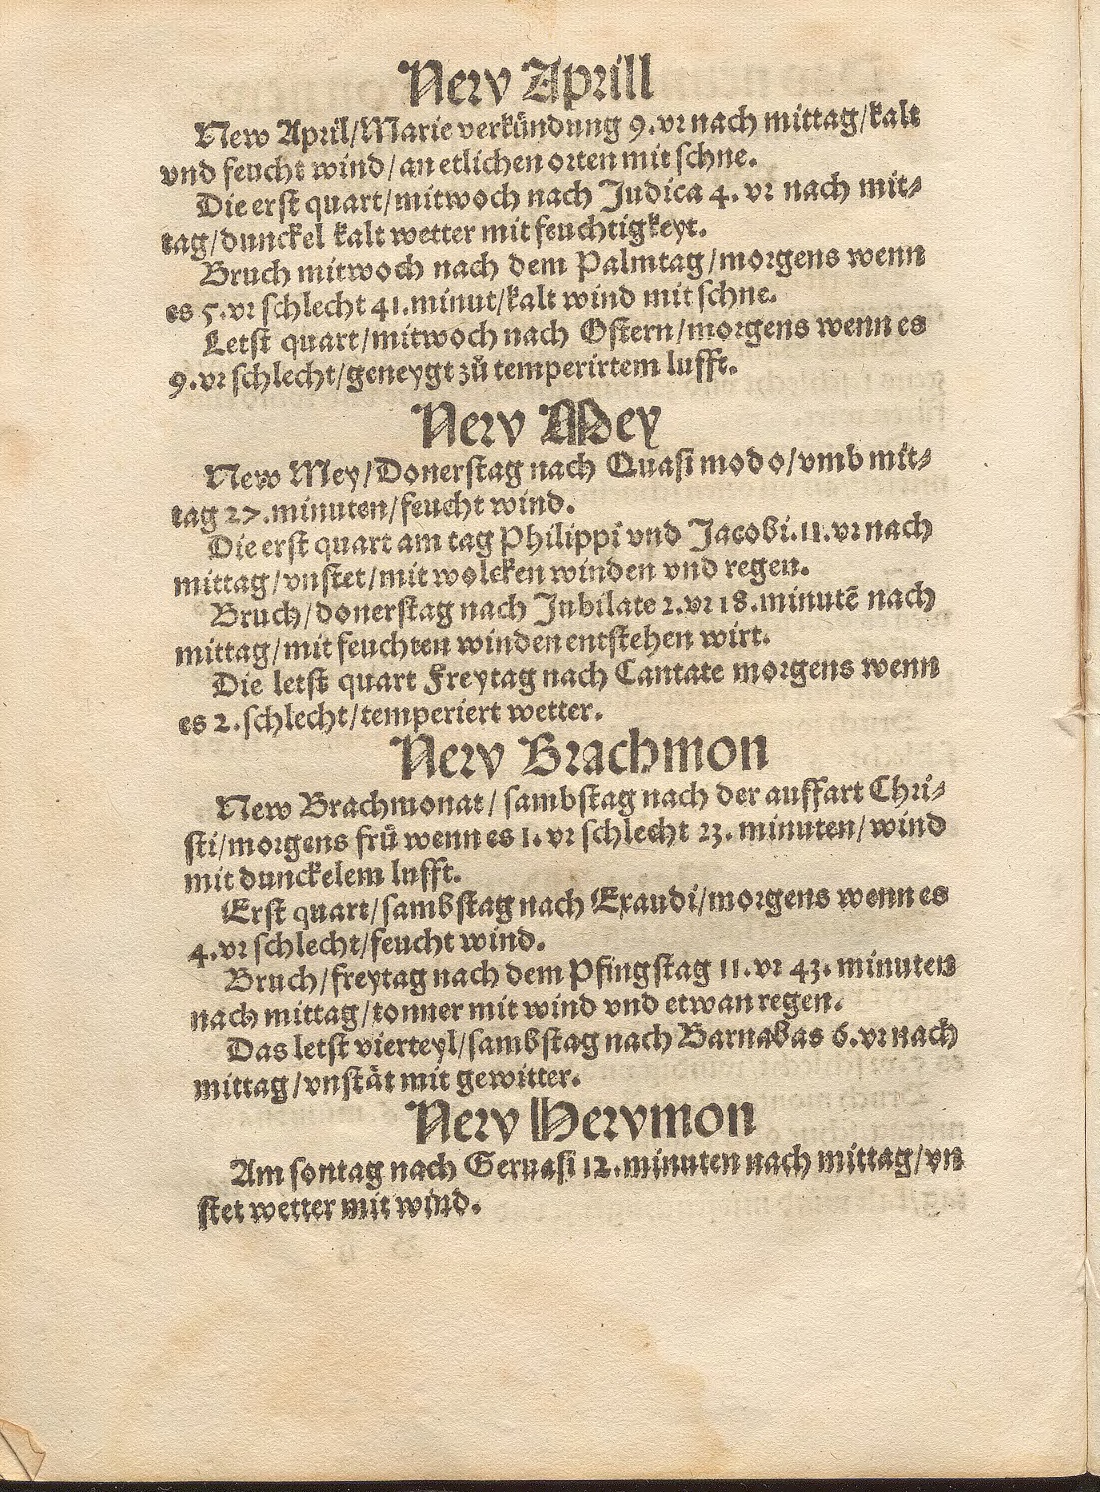 New Aprill
New April/Marie verkündung 9.vr nach mittag/kalt
vnd feucht wind/an etlichen orten mit schne.
Die erst quart/mitwoch nach Judica 4. vr nach mit⸗
tag/dunckel kalt wetter mit feuchtigkeyt.
Bruch mitwoch nach dem Palmtag/morgens wenn
es 5.vr schlecht 41.minut/kalt wind mit schne.
Letst quart/mitwoch nach Ostern/morgens wenn es
9.vr schlecht/geneygt zů temperirtem lufft.
New Mey
New Mey/Donerstag nach Quasi modo/vmb mit⸗
tag 27.minuten/feucht wind.
Die erst quart am tag Philippi vnd Jacobi.11.vr nach
mittag/vnstet/mit wolcken winden vnd regen.
Bruch/donerstag nach Jubilate 2.vr 18.minutẽ nach
mittag/mit feuchten winden entstehen wirt.
Die letst quart Freytag nach Cantate morgens wenn
es 2.schlecht/temperiert wetter.
New Brachmon
New Brachmonat/sambstag nach der auffart Chri⸗
sti/morgens frü wenn es 1. vr schlecht 23. minuten/wind
mit dunckelem lufft.
Erst quart/sambstag nach Exaudi/morgens wenn es
4.vr schlecht/feucht wind.
Bruch/freytag nach dem Pfingstag 11.vr 43. minuten
nach mittag/tonner mit wind vnd etwan regen.
Das letst vierteyl/sambstag nach Barnabas 6.vr nach
mittag/vnstät mit gewitter.
New Hewmon
Am sontag nach Geruasi 12.minuten nach mittag/vn
stet wetter mit wind.